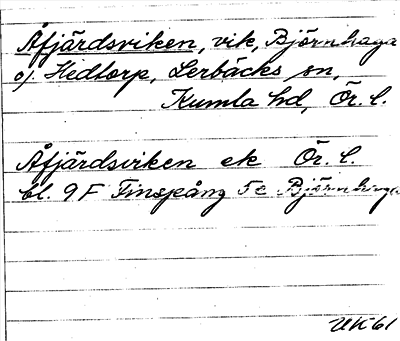 Åfjärdsviken, vik, Björnhaga
o/. Hedtorp, Lerbäcks sn,
Kumla hd, Ör. l.
Åfjärdsviken ek Ör. l.
bl. 9F Finspång 5c Björnhaga
UK 61